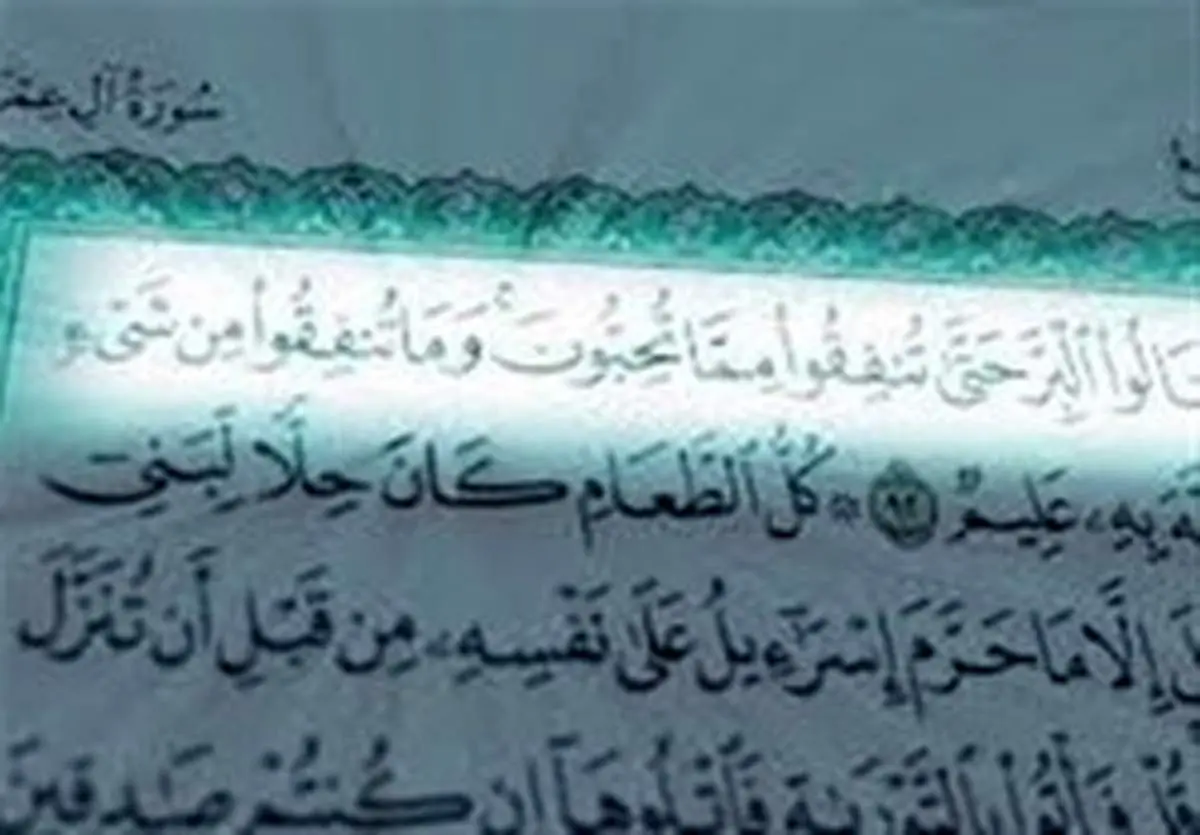 سُورَةُ آلِ عِمْ
نَالُوا۟ ٱلْبِرَّ حَتَّىٰ تُنفِقُوا۟ مِمَّا تُحِبُّونَ ۚ وَمَا تُنفِقُوا۟ مِن شَىْءٍ
بِهِۦ عَلِيمٌ ۝٩٢ ۞ كُلُّ ٱلطَّعَامِ كَانَ حِلًّا لِّبَنِىٓ
إِلَّا مَا حَرَّمَ إِسْرَٰٓءِيلُ عَلَىٰ نَفْسِهِۦ مِن قَبْلِ أَن تُنَزَّلَ
قُلْ فَأْتُوا۟ بِٱلتَّوْرَىٰةِ فَٱتْلُوهَآ إِن كُنتُمْ صَٰدِقِينَ